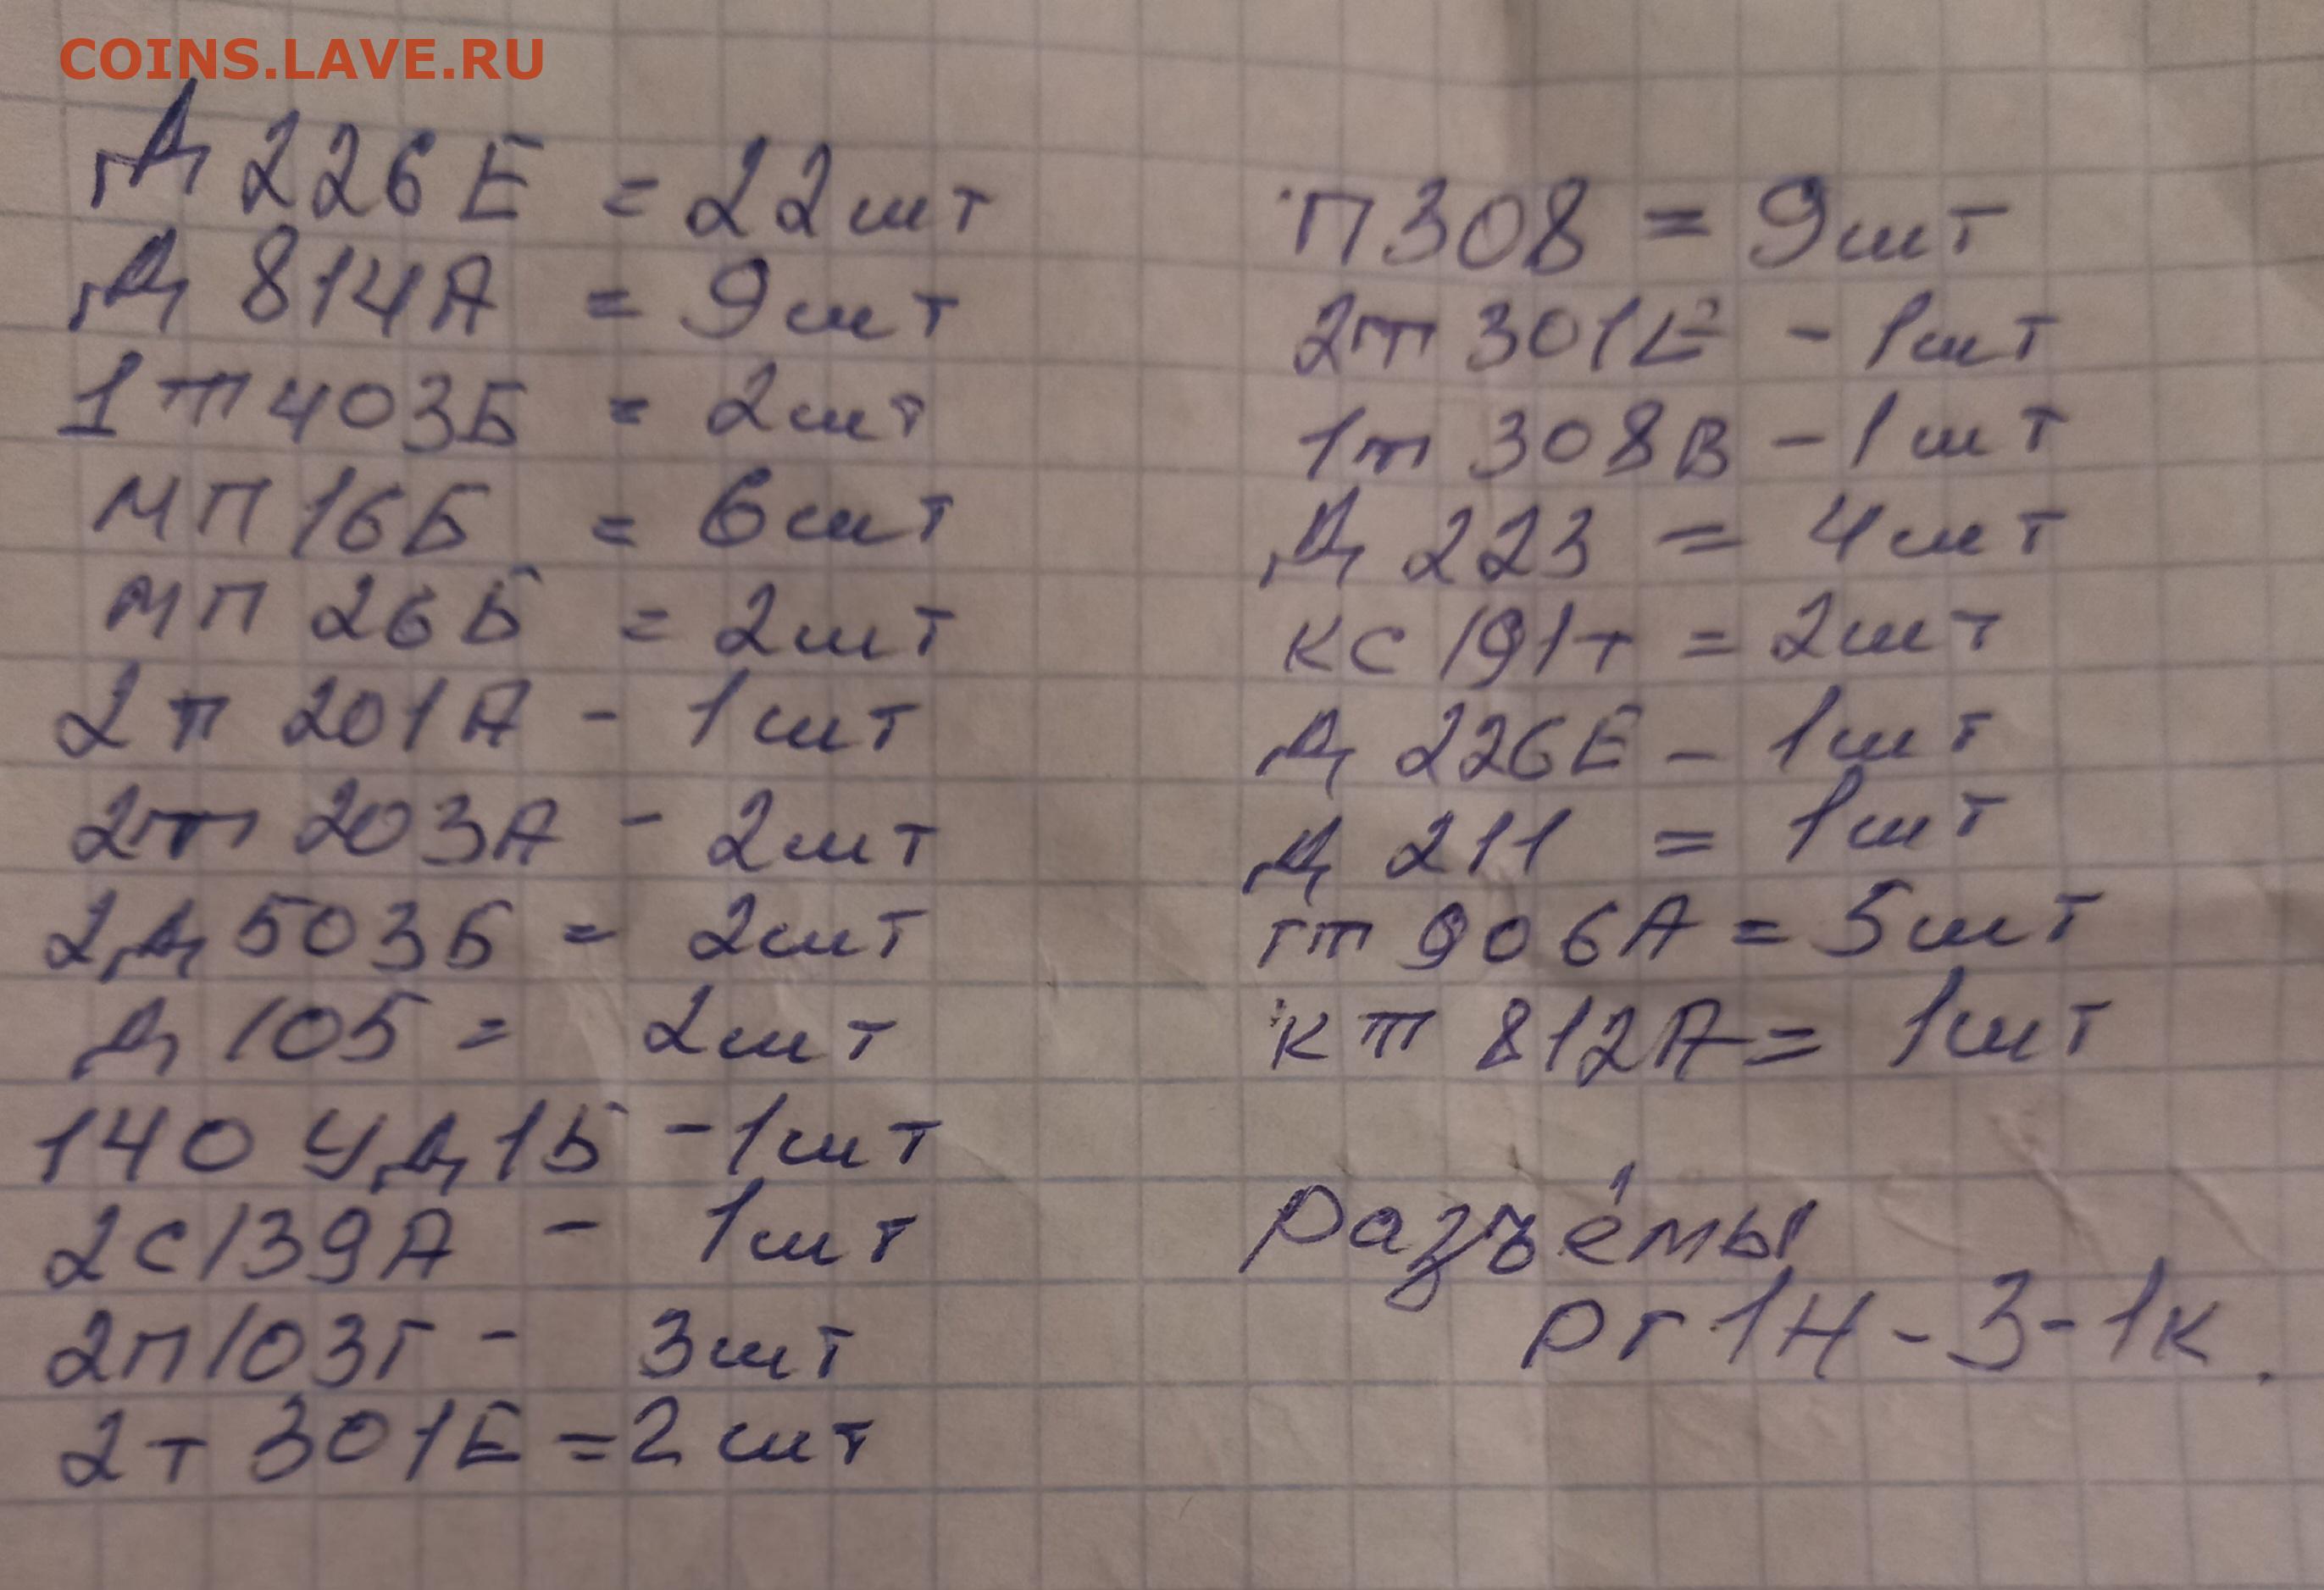 COINS.LAVE.RU
Д 226Е = 22шт
Д 814А = 9шт
1т403Б = 2шт
МП16Б = 6шт
МП 26Б = 2шт
2т 201А - 1шт
2т 203А - 2шт
2Д503Б = 2шт
Д105 = 2шт
140УД1Б - 1шт
2С139А - 1шт
2П103Г - 3шт
2т 301Е = 2шт
П308 = 9шт
2т 301Е - 1шт
1т 308В - 1шт
Д 223 = 4шт
КС191т = 2шт
Д 226Е - 1шт
Д 211 = 1шт
гт 906А = 5шт
КТ 812А = 1шт
Разъёмы
РГ1Н-3-1К.